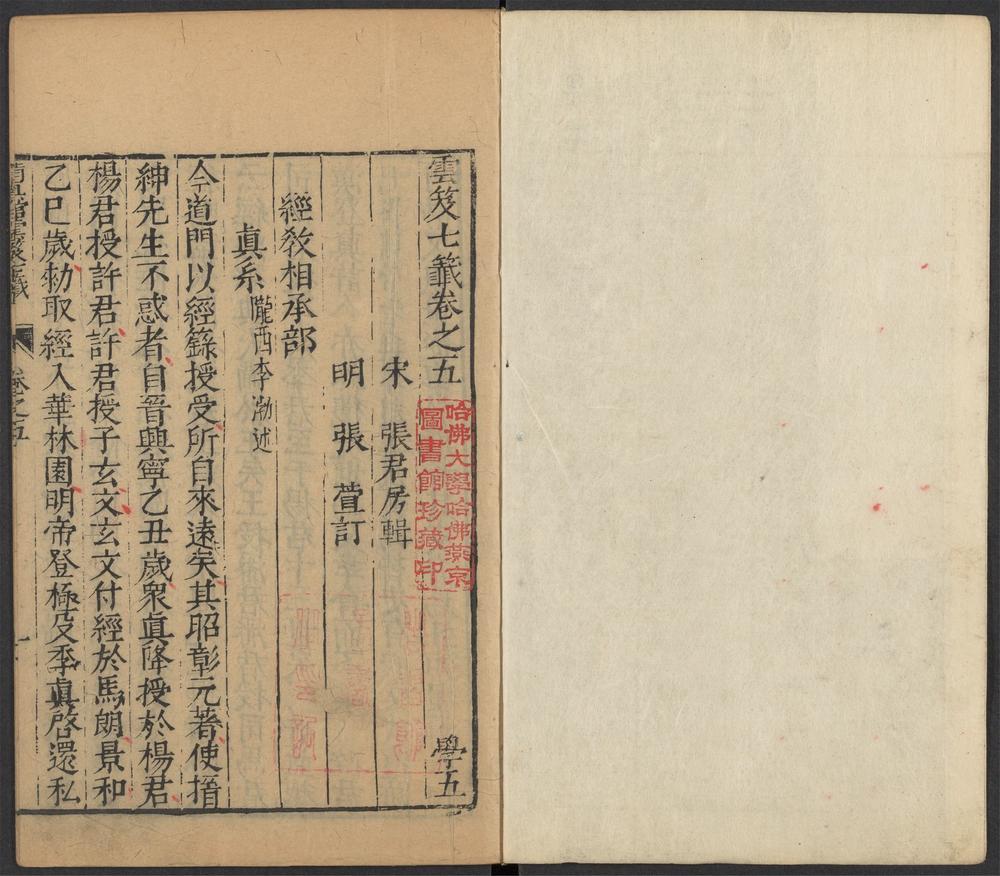 雲笈七籤卷之五
學五
宋 張君房輯
明 張 萱訂
經教相承部
真系 隴西李渤述
今道門以經籙授受所自來遠矣其昭彰元著使搢
紳先生不惑者自晉興寧乙丑歲衆真降授於楊君
楊君授許君許君授子玄文玄文付經於馬朗景和
乙巳歲勅取經入華林園明帝登極殳季真啓還私
卷之五
一
哈佛大學哈佛燕京
圖書館珍藏印